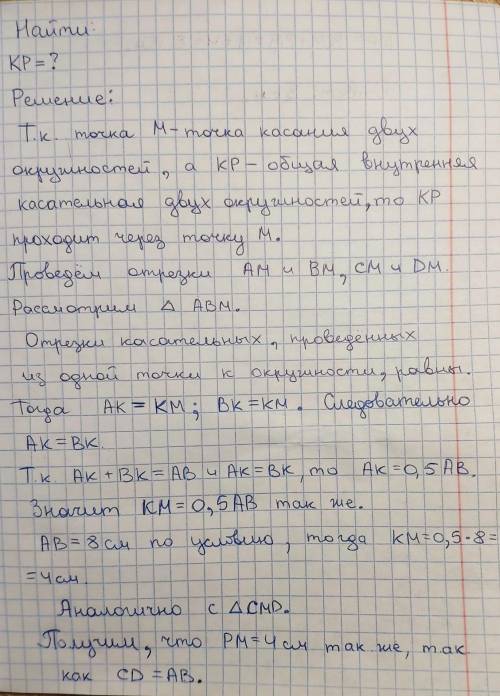 Найти:
KP = ?
Решение:
Т.к. точка M - точка касания двух
окружностей, а KP - общая внутренняя
касательная двух окружностей, то KP
проходит через точку M.
Проведём отрезки AM и BM, CM и DM.
Рассмотрим △ ABM.
Отрезки касательных, проведенных
из одной точки к окружности, равны.
Тогда AK = KM; BK = KM. Следовательно
AK = BK.
Т.к. AK + BK = AB и AK = BK, то AK = 0,5 AB.
Значит KM = 0,5 AB так же.
AB = 8 см по условию, тогда KM = 0,5 · 8 =
= 4 см.
Аналогично с △CMD.
Получим, что PM = 4 см так же, так
как CD = AB.